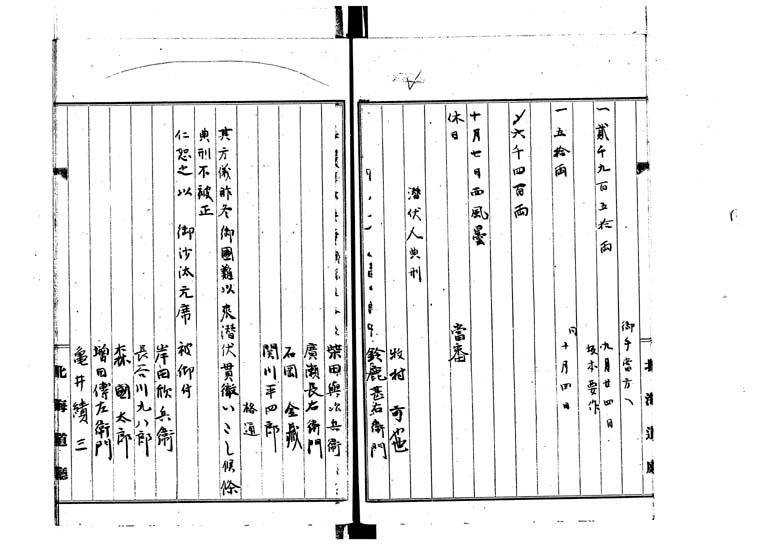 御手當方へ
一 貳千九百五拾両 九月廿四日
坂本要作
一 五拾両 同十月四日
〆六千四百両
十月七日西風曇
休日 當番
潜伏人典刑
牧村可也
鈴鹿甚右衛門
柴田與次兵衛
廣瀬長右衛門
石岡金蔵
関川平四郎
格通
其方儀昨冬御國難以来潜伏貫徹いたし候條
典刑不被正
仁恕之以 御沙汰元席 被仰付
岸田欣兵衛
長谷川九八郎
森國太郎
増田傳左衛門
亀井績三
北海道廳
北海道廳